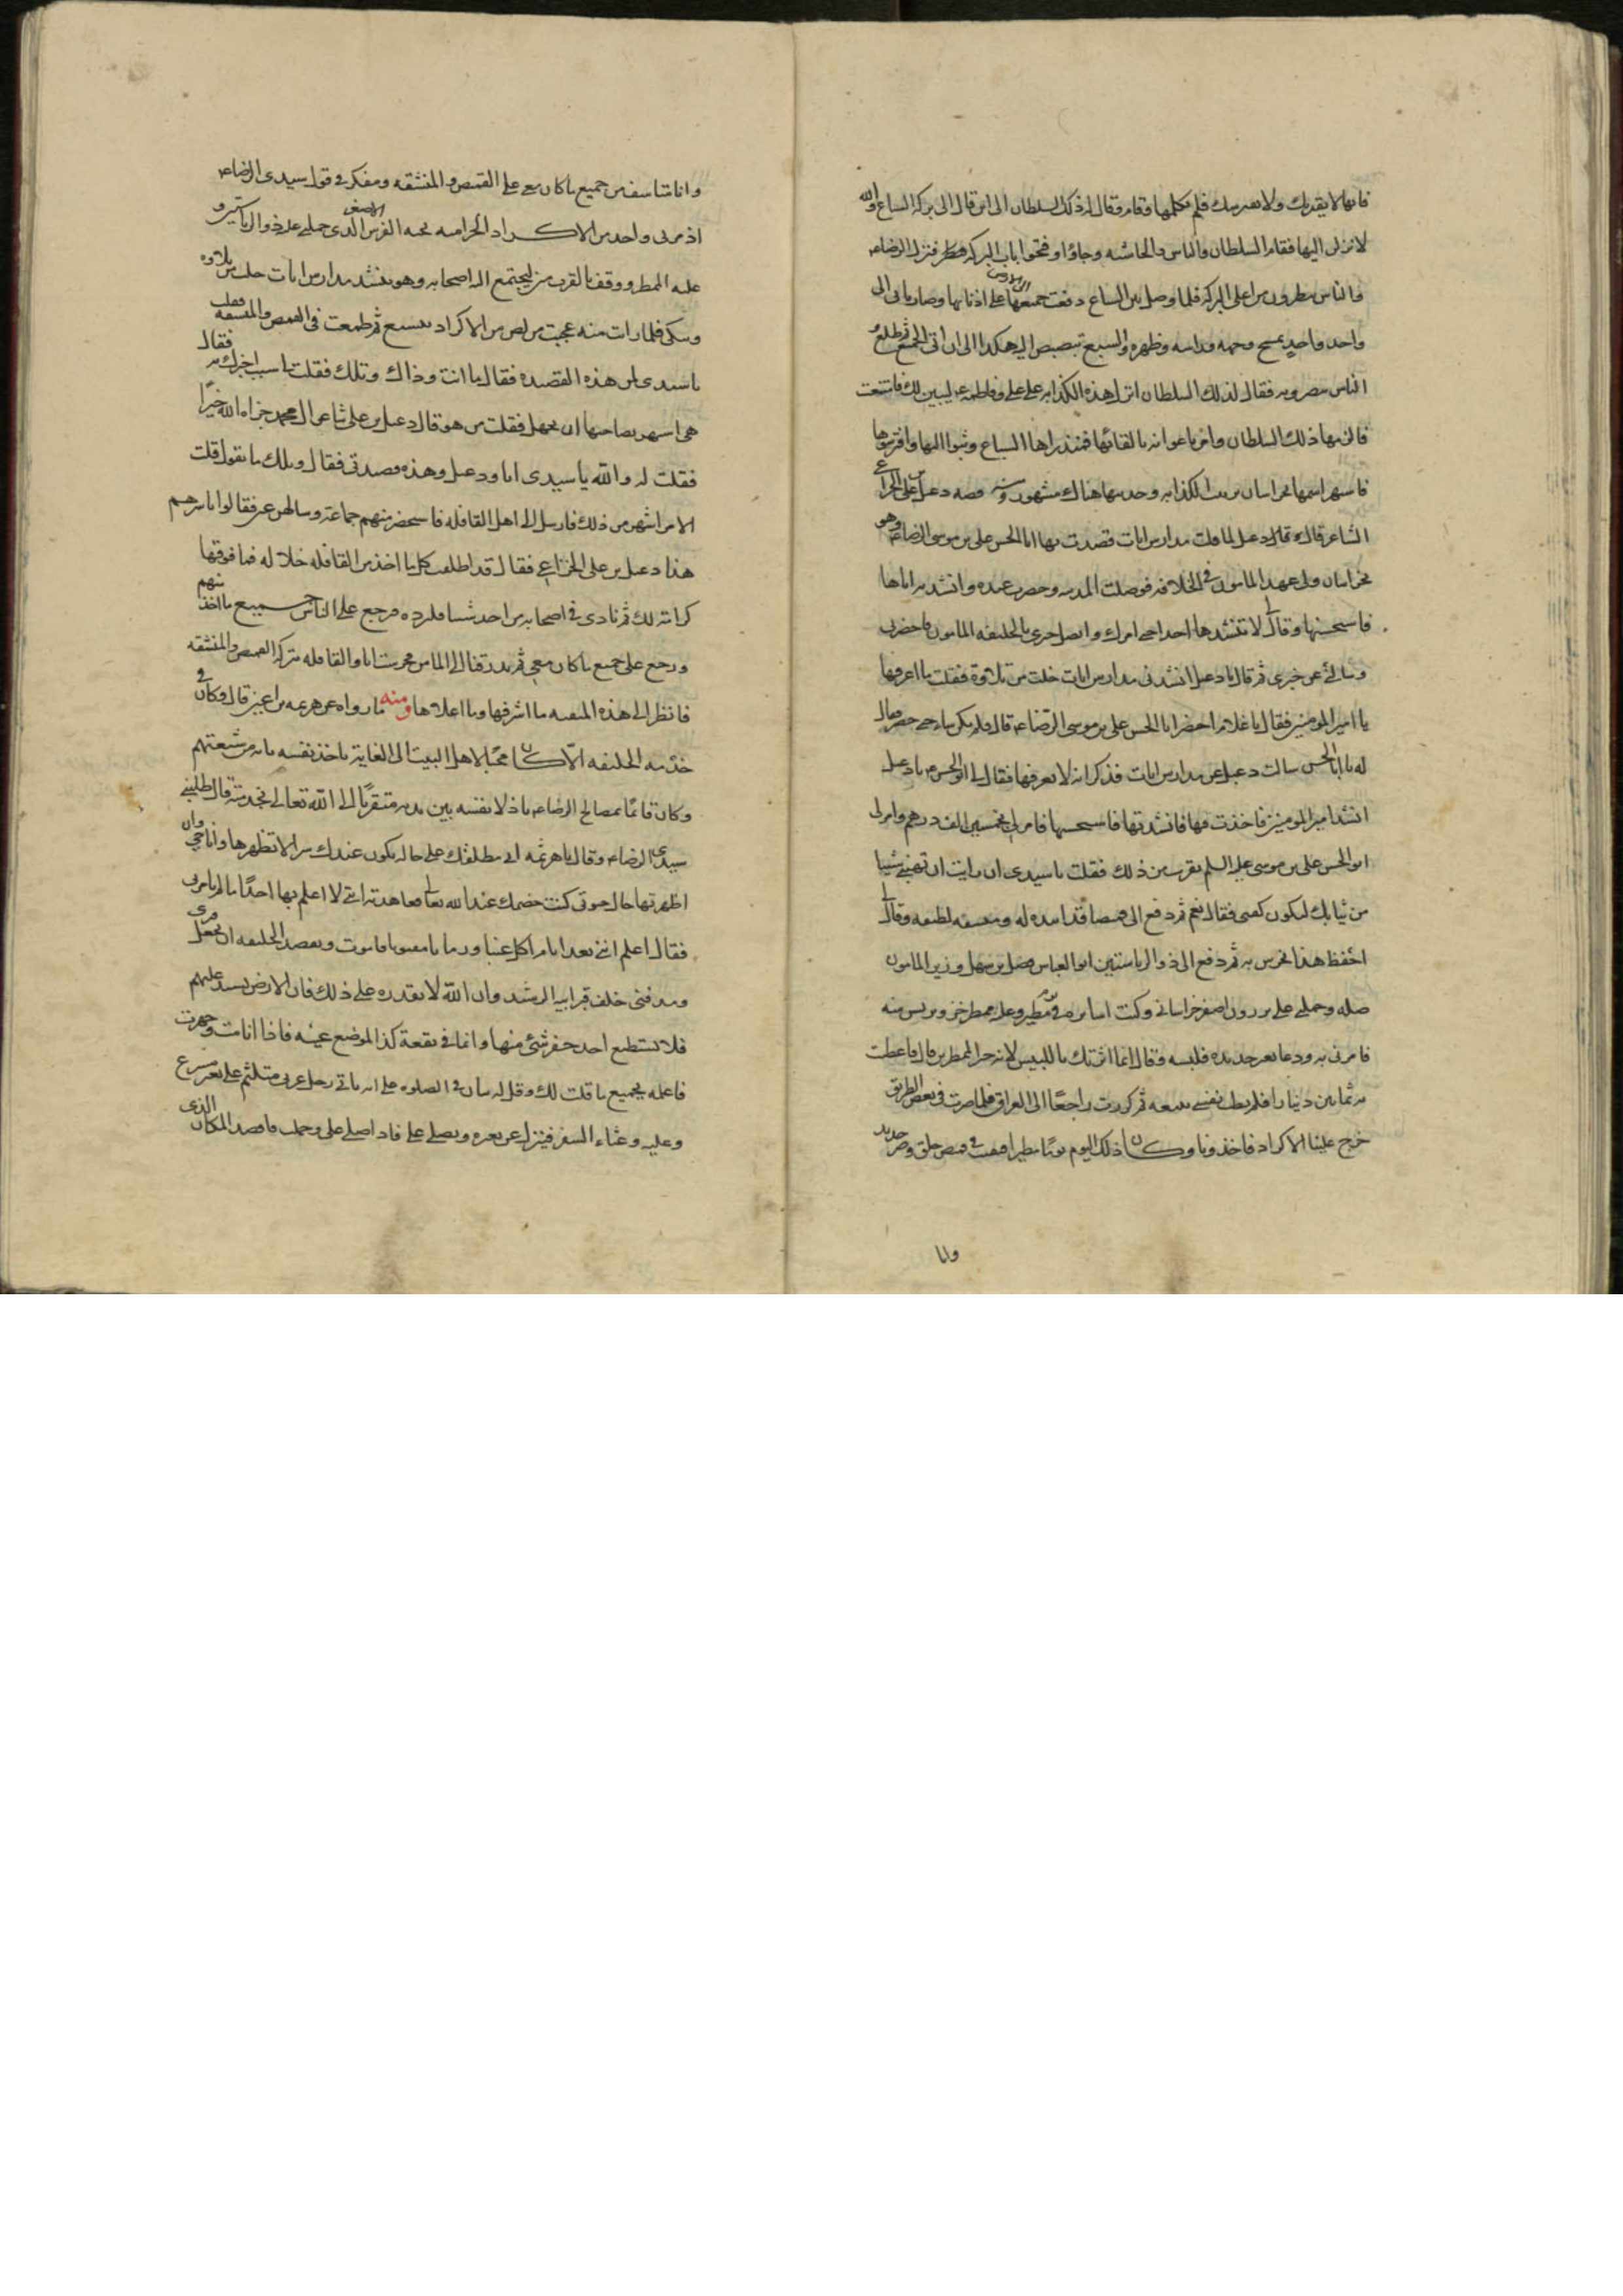 فانها لا يقربك ولا يفترسك فلم تكلمها وقام وقال له ذلك السلطان الى اين قال الى بركة السباع والله
لانزلن اليها فقام السلطان والناس والحاشيه وجاؤا وفتحوا باب البركه فنزل الرضاء
والناس ينظرون من اعلى البركه فلما وصل بين السباع جميعها على اذنابها وصار ياتى الى
واحد واحد يمسح وجهه وراسه وظهره والسبع يبصبص اليه هكذا الى ان اتى الجميع ثم طلع و
الناس ينظرونه فقال لذلك السلطان انزل هذه الكذابه على على وفاطمه ليبين لك فامتنعت
فالزمها ذلك السلطان وامر اعوانه بالقائها فمذ راها السباع وثبوا اليها وافترسوها
فاشتهر اسمها بخراسان بزينب الكذابه وحديثها هناك مشهور ومنه قصه دعبل بن على الخزاعى
الشاعر قال دعبل لما قلت مدارس ايات قصدت بها ابا الحسن على بن موسى الرضاء وهو
بخراسان ولى عهد المامون فى الخلافه فوصلت المدينه وحضرت عنده وانشدته اياها
فاستحسنها وقال لا تنشدها احدا حتى امرك واتصل خبرى بالخليفه المامون فاحضرنى
وسالنى عن خبرى ثم قال يا دعبل انشدنى مدارس ايات خلت من تلاوة فقلت ما اعرفها
يا امير المومنين فقال يا غلام احضر ابا الحسن على بن موسى الرضاء قال فلم يكن ساعه حتى حضر فقال
له يا ابا الحسن سالت دعبل عن مدارس ايات فذكر انه لا يعرفها فقال لى ابو الحسن يا دعبل
انشد امير المومنين فاخذت فيها فانشدتها فاستحسنها فامر لى بخمسين الف درهم وامر لى
ابو الحسن على بن موسى عليه السلم بقريب من ذلك فقلت يا سيدى ان رايت ان تهبنى شيئا
من ثيابك ليكون كفنى فقال نعم ثم دفع الى قميصا قد ابتذله ومنشفه لطيفه وقال لى
احفظ هذا تحرس به ثم دفع الى ذو الرياستين ابو العباس فضل بن سهل وزير المامون
صله وحملنى على برذون اصفر خراسانى وكنت اسايره فى يوم مطير وعليه ممطر خز وبرنس منه
فامر لى به ودعا بغيره جديد فلبسه وقال انما اثرتك باللبيس لانه خير الممطرين قال فاعطيت
به ثمانين دينارا فلم تطب نفسى ببيعه ثم كررت راجعا الى العراق فلما صرت فى بعض الطريق
خرج علينا الاكراد فاخذونا وكان ذلك اليوم يوما مطيرا فبقيت فى قميص خلق وضر جديد
وانا
وانا متاسف من جميع ما كان معى على القميص والمنشفه ومفكر فى قول سيدى الرضاء
اذ مر بى واحد من الاكراد الحراميه تحته الفرس الاصفر الذى حملنى عليه ذو الرياستين و
عليه الممطر ووقف بالقرب منى ليجتمع اليه اصحابه وهو ينشد مدارس ايات خلت من تلاوة
ويبكى فلما رايت منه عجبت من لص من الاكراد يتشيع ثم طمعت فى القميص والمنشفه فقلت
يا سيدى لمن هذه القصيده فقال ما انت وذاك ويلك فقلت له سبب اخبرك به فقال
هى اشهر بصاحبها ان تجهل فقلت من هو قال دعبل بن على شاعر ال محمد جزاه الله خيرا
فقلت له والله يا سيدى انا دعبل وهذه قصيدتى فقال ويلك ما تقول قلت
الامر اشهر من ذلك فارسل الى اهل القافله فاستحضر منهم جماعة وسالهم عنى فقالوا باسرهم
هذا دعبل بن على الخزاعى فقال قد اطلقت كل ما اخذ من القافله خلاله فما فوقها
كرامة لك ثم نادى فى اصحابه من اخذ شيئا فليرده فرجع على الناس جميع ما اخذ منهم
ورجع على جميع ما كان معى ثم بدرقنا الى المامن فحرست انا والقافله ببركة القميص والمنشفه
فانظر الى هذه المنقبه ما اشرفها وما اعلاها ومنه ما رواه عن هرثمه بن اعين قال وكان فى
خدمه الخليفه الا كان محبا لاهل البيت الى الغاية ياخذ نفسه بانه من شيعتهم
وكان قائما بمصالح الرضاء باذلا نفسه بين يديه متقربا الى الله تعالى بخدمته قال طلبنى
سيدى الرضاء وقال يا هرثمه انى مطلعك على حاله يكون عندك سرا لا تظهرها وانا حى وان
اظهرتها حال حيوتى كنت خصمك عند الله تعالى فعاهدته انى لا اعلم بها احدا ما لم يامرنى
فقال اعلم اننى بعد ايام اكل عنبا ورمانا مفتوتا فاموت ويقصد الخليفه ان يجعل قبرى
ومدفنى خلف قبر ابيه الرشيد وان الله لا يقدره على ذلك فان الارض يشتد عليهم
فلا تستطيع احد حفر شئ منها وانما فى بقعة كذا لموضع عينه فاذا انا مت وجهزت
فاعلمه بجميع ما قلت لك وقل له يتأن فى الصلوه على انه ياتى رجل عربى متلثم على بعير مسرع
وعليه وعثاء السفر فينزل عن بعيره ويصلى على فاذا صلى على وحملت فاقصد المكان الذى